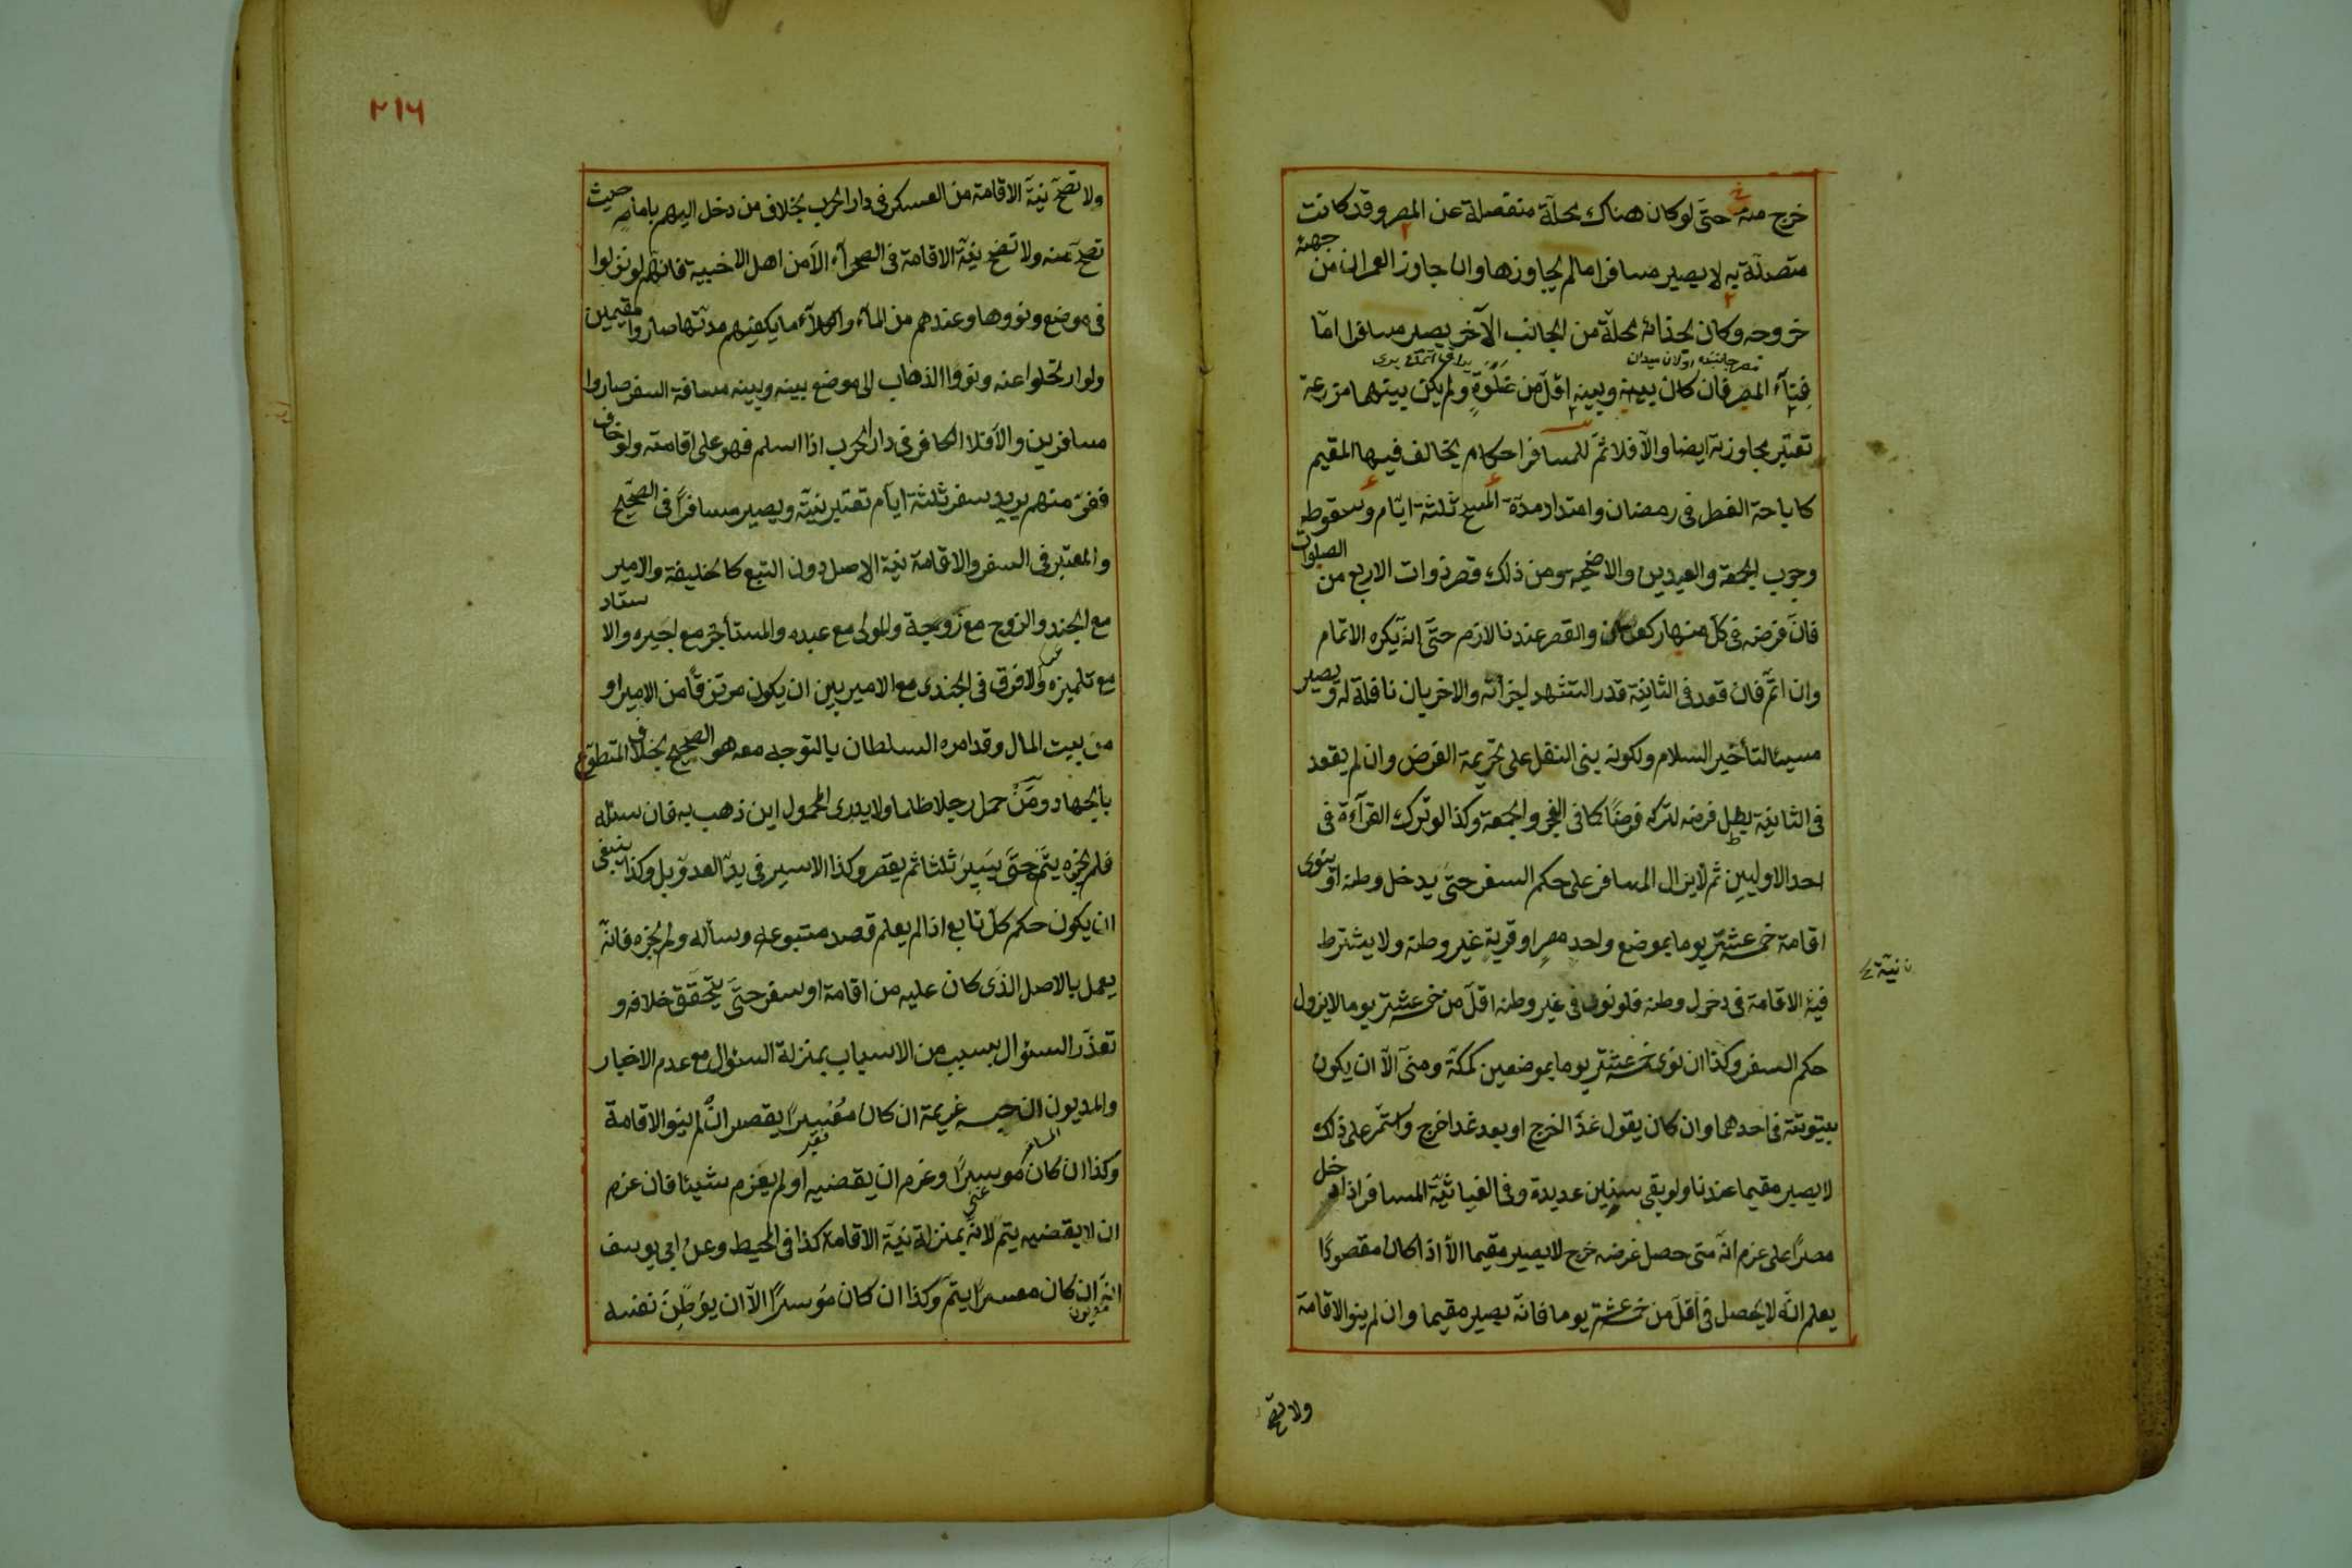 خرج منه حتى لو كان هناك محلة منفصلة عن المصر وقد كانت
متصلة به لا يصير مسافرا ما لم يجاوزها وان جاوز العمران من جهة
خروجه وكان بحذائه محلة من الجانب الآخر يصير مسافرا امّا
فناء المصر فان كان بينه وبينه اقلّ من غلوة ولم يكن بينهما مزرعة
تعتبر مجاوزته ايضا والّا فلا ثمّ للمسافر احكام يخالف فيها المقيم
كاباحة الفطر فى رمضان وامتداد مدّة المسح ثلثة ايّام وسقوط
وجوب الجمعة والعيدين والاضحية ومن ذلك قصر ذوات الاربع من الصلوات
فانّ فرضه فى كلّ منها ركعتان والقصر عندنا لازم حتّى انّه يكره الاتمام
وان اتمّ فان قعد فى الثانية قدر التشهد اجزأته والاخريان نافلة له ويصير
مسيئا لتأخير السلام ولكونه بنى النفل على تحريمة الفرض وان لم يقعد
فى الثانية بطل فرضه لتركه فرضًا كما فى الفجر والجمعة وكذا لو ترك القرآءة فى
احد الاوليين ثم لا يزال المسافر على حكم السفر حتى يدخل وطنه او ينوى
اقامة خمسة عشر يوما بموضع واحد مصر او قرية غير وطنه ولا يشترط
نية الاقامة فى دخول وطنه فلو نوى فى غير وطنه اقلّ من خمسة عشر يوما لا يزول
حكم السفر وكذا ان نوى خمسة عشر يوما بموضعين كمكّة ومنى الّا ان يكون
بيتوتته فى احدهما وان كان يقول غدًا اخرج او بعد غد اخرج واستمر على ذلك
لا يصير مقيما عندنا ولو بقى سنين عديدة وفى الغياثيّة المسافر اذا دخل
مصرًا على عزم انّه متى حصل غرضه خرج لا يصير مقيما الّا اذا كان مقصودًا
يعلم انّه لا يحصل فى اقلّ من خمسة عشر يوما فانّه يصير مقيما وان لم ينو الاقامة
نيّة
ولا تصحّ
٢١٦
ولا تصحّ نيّة الاقامة من العسكر فى دار الحرب بخلاف من دخل اليهم بامان حيث
تصحّ منه ولا تصحّ نيّة الاقامة فى الصحرآء الّا من اهل الاخبية فانّهم لو نزلوا
فى موضع ونووها وعندهم من المآء والكلآء ما يكفيهم مدّتها صاروا مقيمين
ولو ارتحلوا عنه ونووا الذهاب الى موضع بينه وبينه مسافة السفر صاروا
مسافرين والّا فلا الكافر فى دار الحرب اذا اسلم فهو على اقامته ولو خاف
ففرّ منهم يريد سفر ثلثة ايّام تعتبر نيّته ويصير مسافرًا فى الصحيح
والمعتبر فى السفر والاقامة نية الاصل دون التبع كالخليفة والامير
مع الجند والزوج مع زوجته والمولى مع عبده والمستأجر مع اجيره والاستاد
مع تلميذه ولا فرق فى الجندى مع الامير بين ان يكون مرتزقًا من الامير او
من بيت المال وقد امره السلطان بالتوجه معه هو الصحيح بخلاف المتطوّع
بالجهاد ومن حمل رجلا ظلما ولا يدرى المحمول اين ذهب به فان سئله
فلم يخبره يتمّ حتّى يسير ثلثا ثم يقصر وكذا الاسير فى يد العدوّ بل وكذا ينبغى
ان يكون حكم كلّ تابع اذا لم يعلم قصد متبوعه وسأله ولم يخبره فانّه
يعمل بالاصل الذى كان عليه من اقامة او سفر حتّى يتحقّق خلافه و
تعذّر السئوال بسبب من الاسباب بمنزلة السئوال مع عدم الاخبار
والمديون ان حبسه غريمه ان كان معسرًا يقصر ان لم ينو الاقامة
وكذا ان كان موسرًا وعزم ان يقضيه او لم يعزم شيئا فان عزم
ان لا يقضيه يتمّ لانّه بمنزلة نيّة الاقامة كذا فى المحيط وعن ابى يوسف
انّه ان كان معسرًا يتمّ وكذا ان كان موسرًا الّا ان يوطّن نفسه